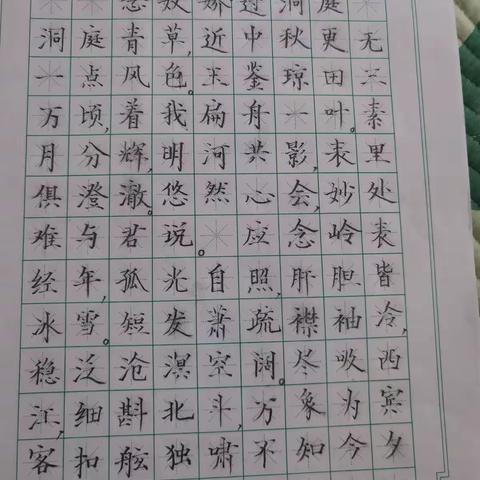 念奴娇过洞庭
洞庭青草,近中秋更无
一点风色。玉鉴琼田三
万顷,着我扁舟一叶。素
月分辉,明河共影,表里
俱澄澈。悠然心会,妙处
难与君说。应念岭表
经年,孤光自照,肝胆皆
冰雪。短发萧疏襟袖冷,
稳泛沧溟空阔。尽吸西
江,细斟北斗,万象为宾
客扣舷独啸不知今夕